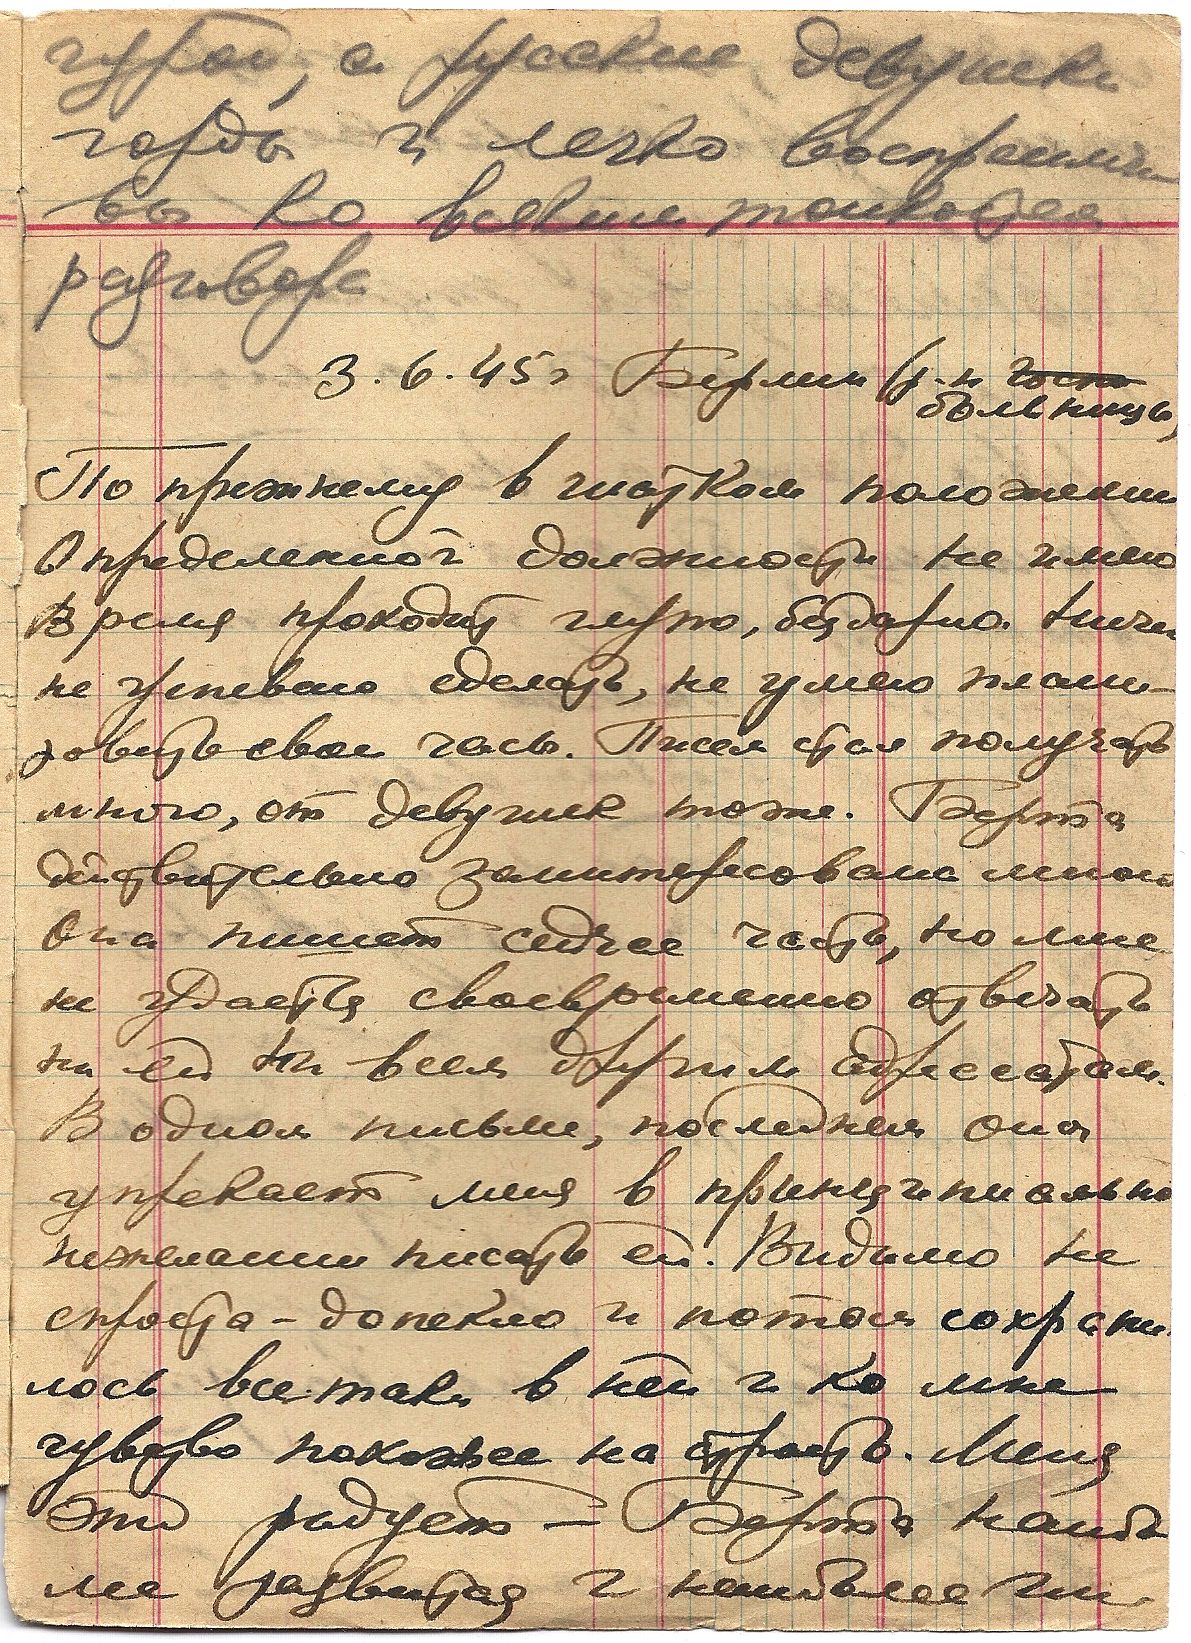 гурой, а русские девушки
горды и легко восприимчи
вы ко всяким тонкостям
разговора
3.6.45г Берлин (р-н госп
больницы)
По прежнему в шатком положении
Определенной должности не имею
Время проходит глупо, бездарно. Ничего
не успеваю сделать, не умею плани-
ровать свои часы. Писем стал получать
много, от девушек тоже. Берта
действительно заинтересована мною
Она пишет сейчас часто, но мне
не удается своевременно отвечать
ни ей ни всем другим адресатам.
В одном письме, последнем она
упрекает меня в принципиально
нежелании писать ей. Видимо не
спроста – допекло и потом сохрани
лось все таки в ней и ко мне
чувство похожее на страсть. Меня
это радует – Берта наибо
лее развитая и наиболее